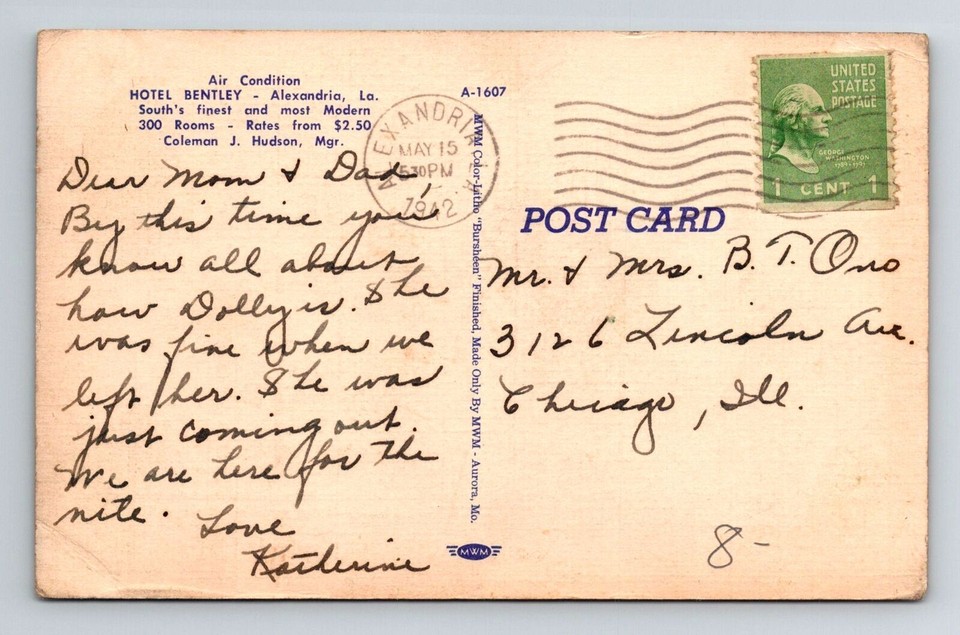 Air Condition
HOTEL BENTLEY - Alexandria, La.
South's finest and most Modern
300 Rooms - Rates from $2.50
Coleman J. Hudson, Mgr.
A-1607
ALEXANDRIA
MAY 15
530PM
1942
UNITED
STATES
POSTAGE
GEORGE
WASHINGTON
1789-1797
1 CENT 1
POST CARD
Dear Mom & Dad,
By this time you
know all about
how Dolly is. She
was fine when we
left her. She was
just coming out.
We are here for the
nite. Love
Katherine
MWM Color-Litho "Bursheen" Finished, Made Only By MWM - Aurora, Mo.
MWM
Mr. & Mrs. B. T. Ono
3126 Lincoln Ave.
Chicago, Ill.
8-